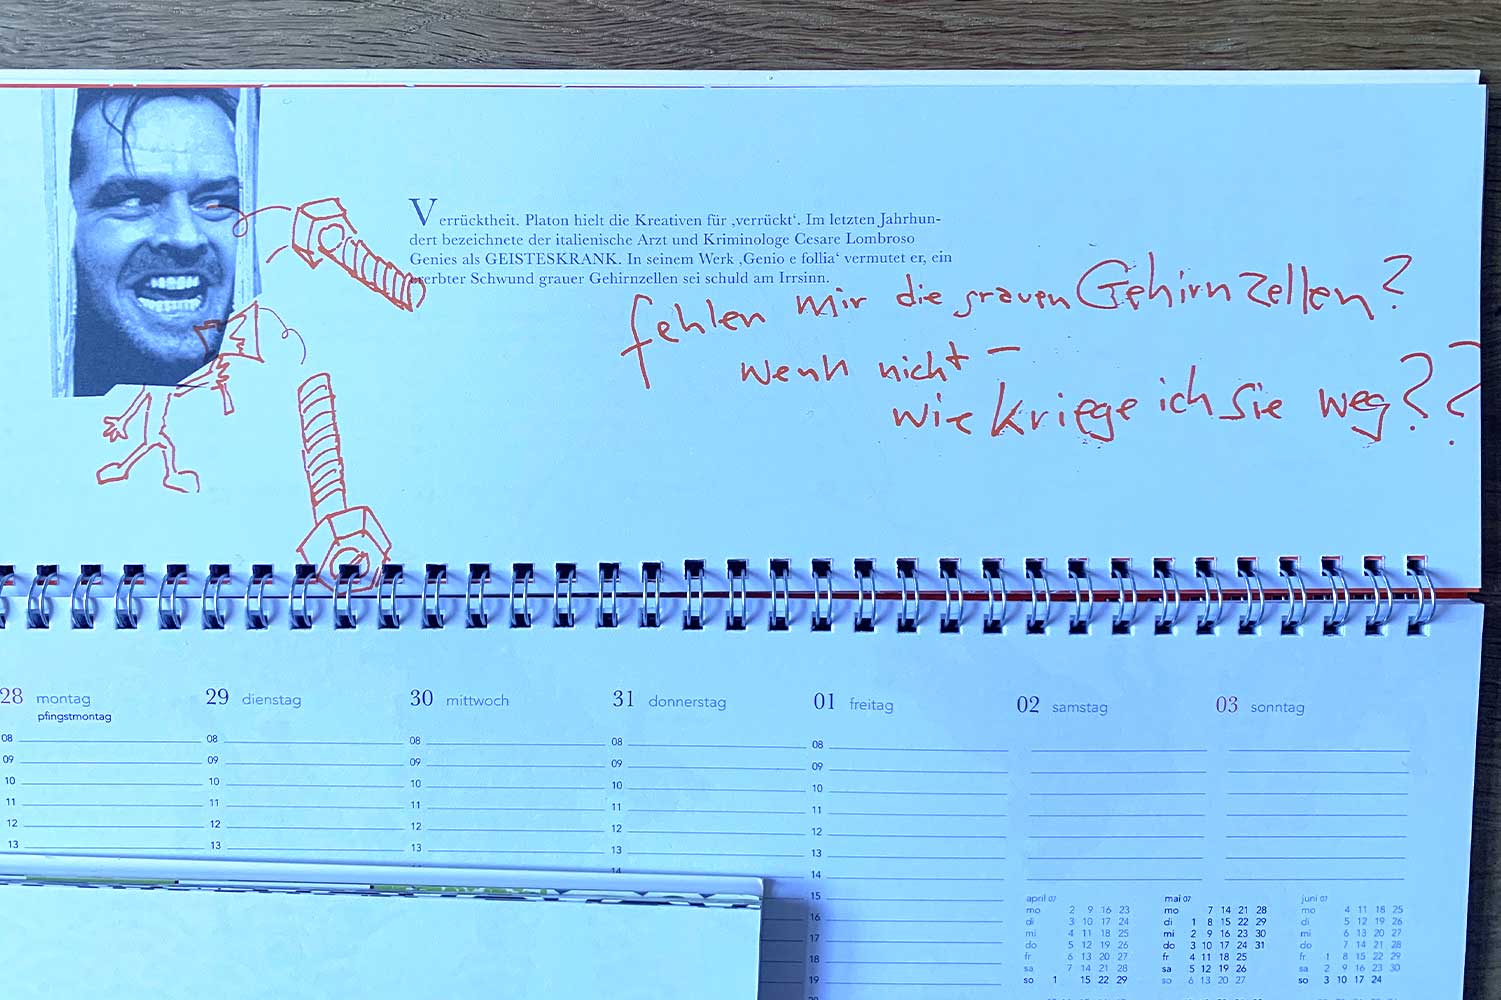 Verrücktheit. Platon hielt die Kreativen für ‚verrückt‘. Im letzten Jahrhun-
dert bezeichnete der italienische Arzt und Kriminologe Cesare Lombroso
Genies als GEISTESKRANK. In seinem Werk ‚Genio e follia‘ vermutet er, ein
ererbter Schwund grauer Gehirnzellen sei schuld am Irrsinn.
fehlen mir die grauen Gehirnzellen?
wenn nicht –
wie kriege ich sie weg??
28 montag 29 dienstag 30 mittwoch 31 donnerstag 01 freitag 02 samstag 03 sonntag
pfingstmontag
08 08 08 08 08
09 09 09 09 09
10 10 10 10 10
11 11 11 11 11
12 12 12 12 12
13 13 13 13 13
14 14
15
16
17
18
19
april 07
mo 2 9 16 23
di 3 10 17 24
mi 4 11 18 25
do 5 12 19 26
fr 6 13 20 27
sa 7 14 21 28
so 1 15 22 29
mai 07
mo 7 14 21 28
di 1 8 15 22 29
mi 2 9 16 23 30
do 3 10 17 24 31
fr 4 11 18 25
sa 5 12 19 26
so 6 13 20 27
juni 07
mo 4 11 18 25
di 5 12 19 26
mi 6 13 20 27
do 7 14 21 28
fr 1 8 15 22 29
sa 2 9 16 23 30
so 3 10 17 24